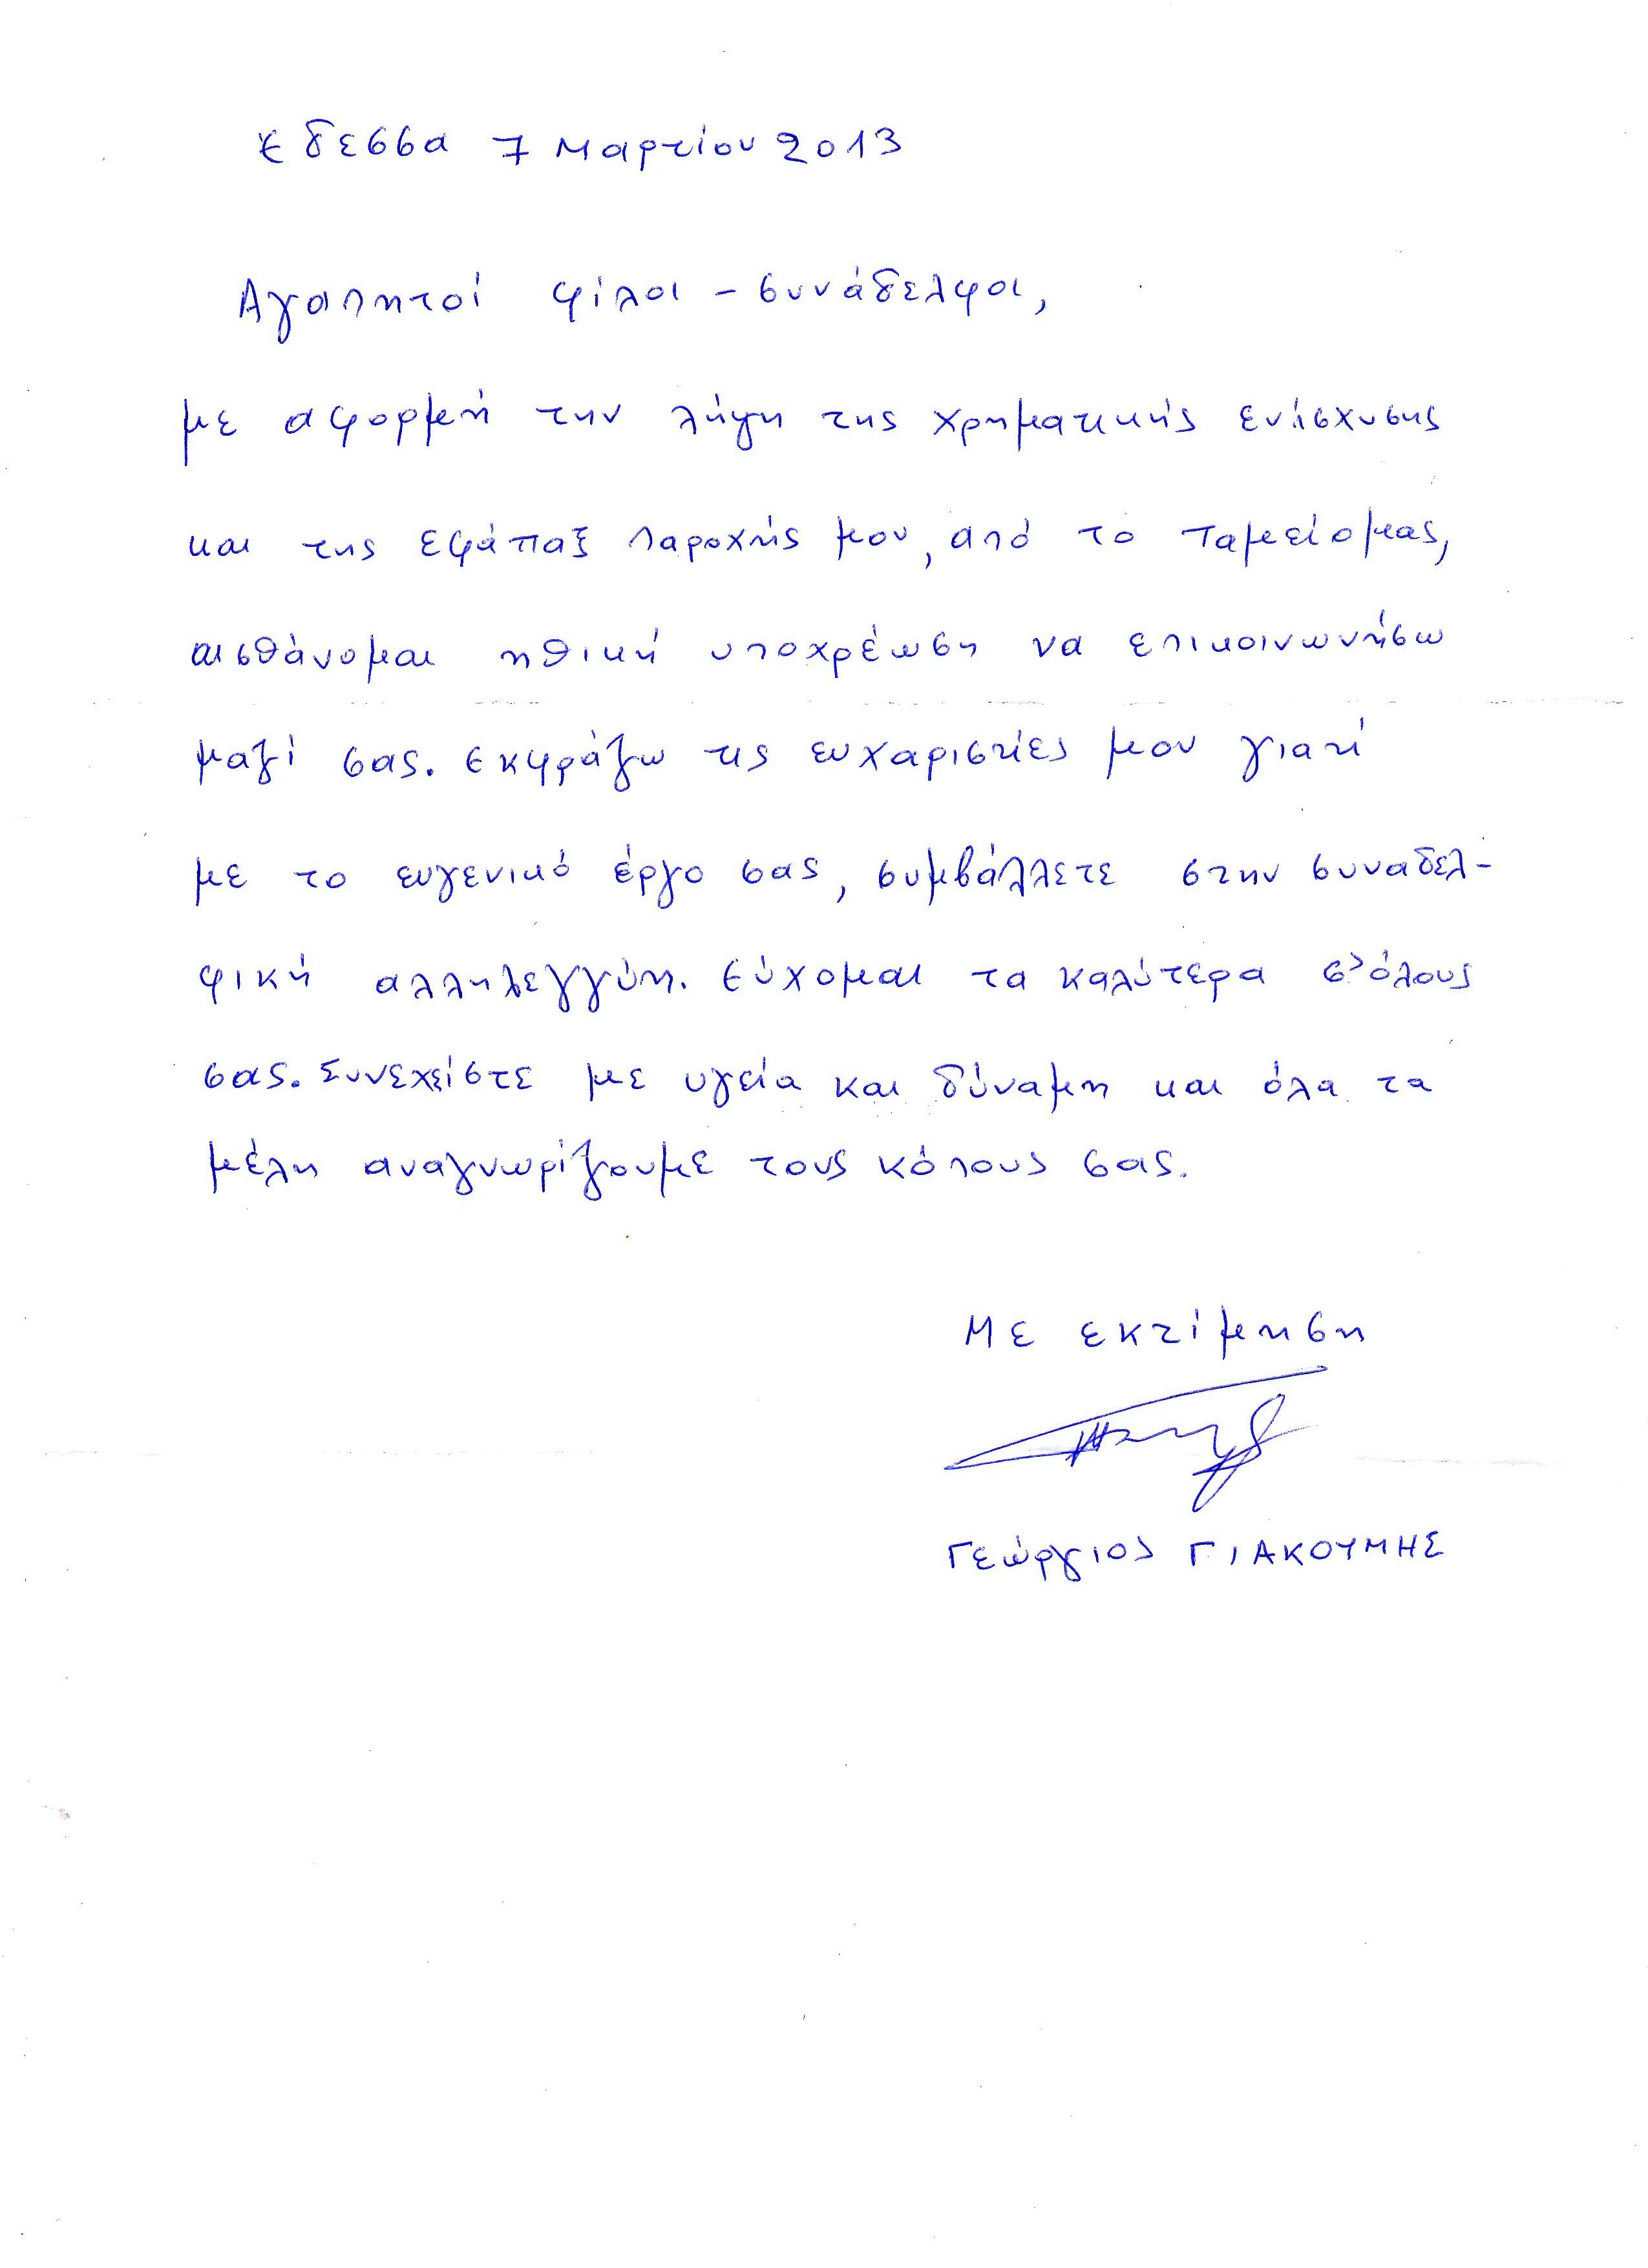 Εδεσσα 7 Μαρτίου 2013
Αγαπητοί φίλοι - συνάδελφοι,
με αφορμή την λήψη της χρηματικής ενίσχυσης
και της εφάπαξ παροχής μου, από το Ταμείο μας,
αισθάνομαι ηθική υποχρέωση να επικοινωνήσω
μαζί σας. Εκφράζω τις ευχαριστίες μου γιατί
με το ευγενικό έργο σας, συμβάλλετε στην συναδελ-
φική αλληλεγγύη. Εύχομαι τα καλύτερα σ' όλους
σας. Συνεχείστε με υγεία και δύναμη και όλα τα
μέλη αναγνωρίζουμε τους κόπους σας.
Με εκτίμηση
Γεώργιος ΓΙΑΚΟΥΜΗΣ